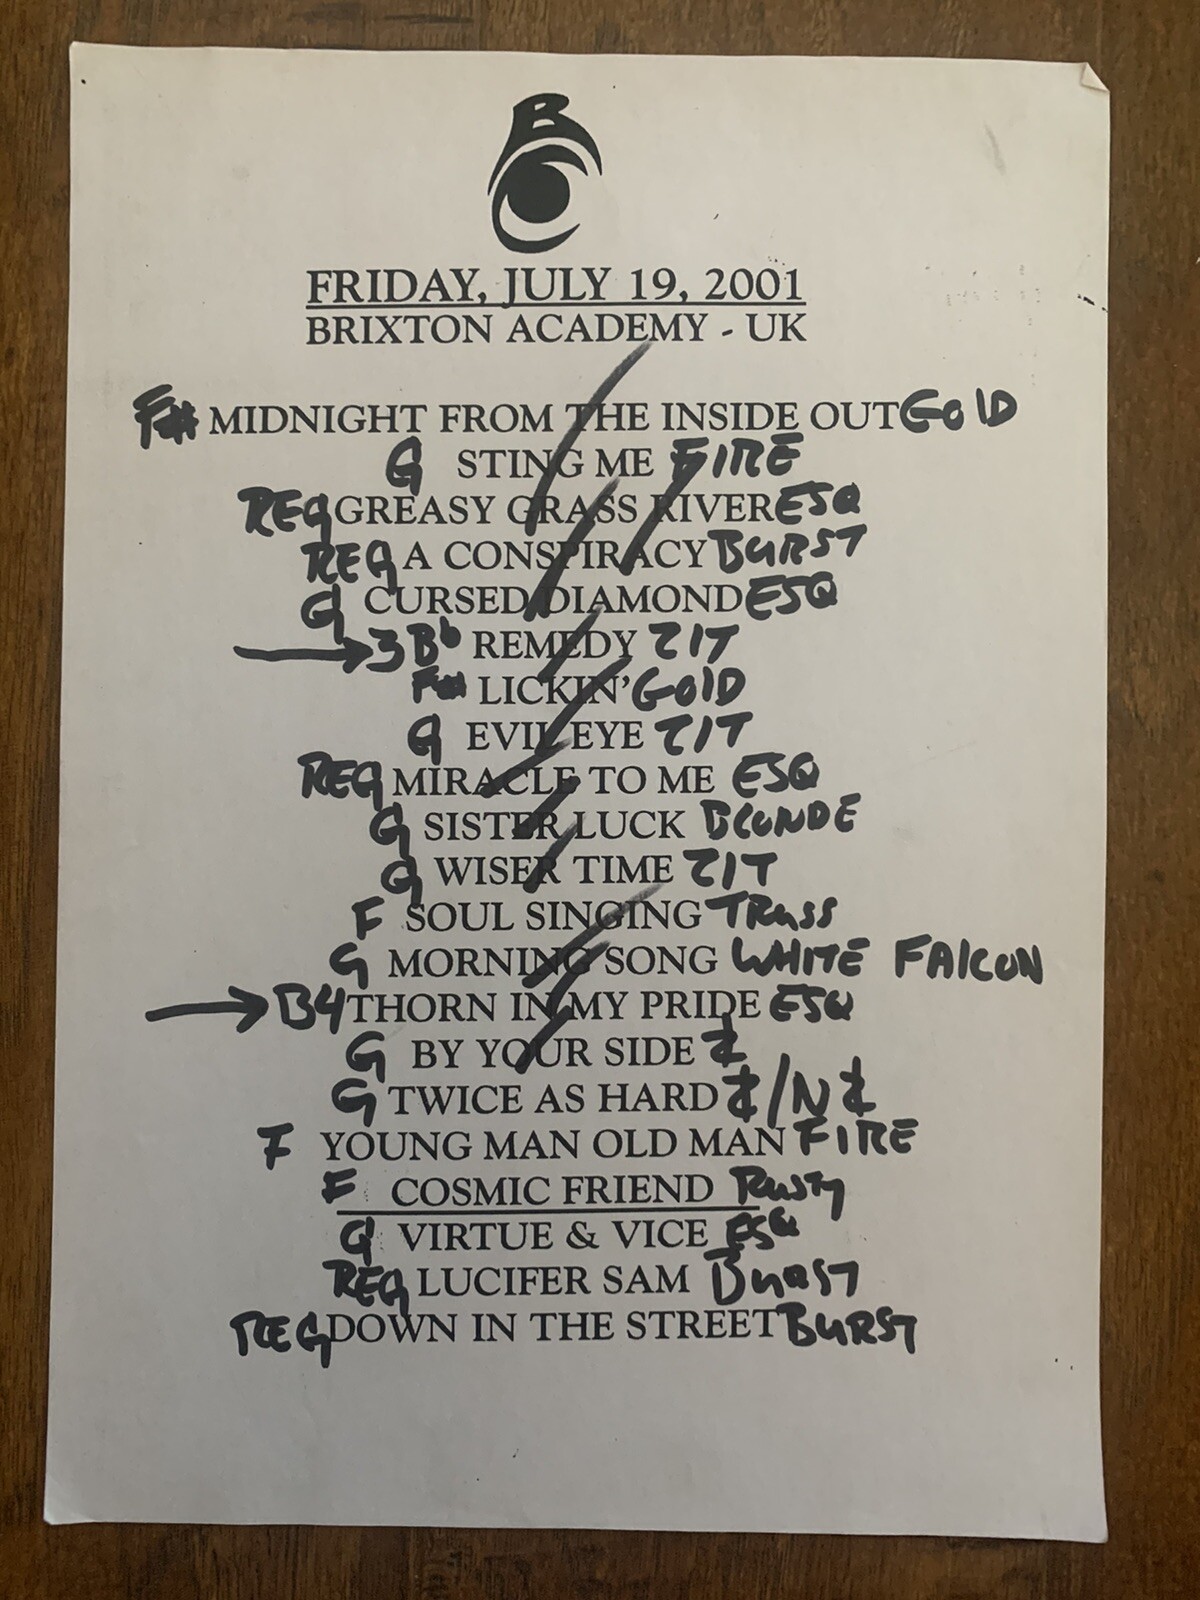 B
FRIDAY, JULY 19, 2001
BRIXTON ACADEMY - UK
F# MIDNIGHT FROM THE INSIDE OUT GOLD
G STING ME FIRE
REG GREASY GRASS RIVER ESQ
REG A CONSPIRACY BURST
G CURSED DIAMOND ESQ
→ 3 Bb REMEDY ZIT
F# LICKIN' GOLD
G EVIL EYE ZIT
REG MIRACLE TO ME ESQ
G SISTER LUCK BLONDE
G WISER TIME ZIT
F SOUL SINGING TRUSS
G MORNING SONG WHITE FALCON
→ B4 THORN IN MY PRIDE ESQ
G BY YOUR SIDE Z
G TWICE AS HARD Z/NZ
F YOUNG MAN OLD MAN FIRE
F COSMIC FRIEND RUSTY
G VIRTUE & VICE ESQ
REG LUCIFER SAM BURST
REG DOWN IN THE STREET BURST